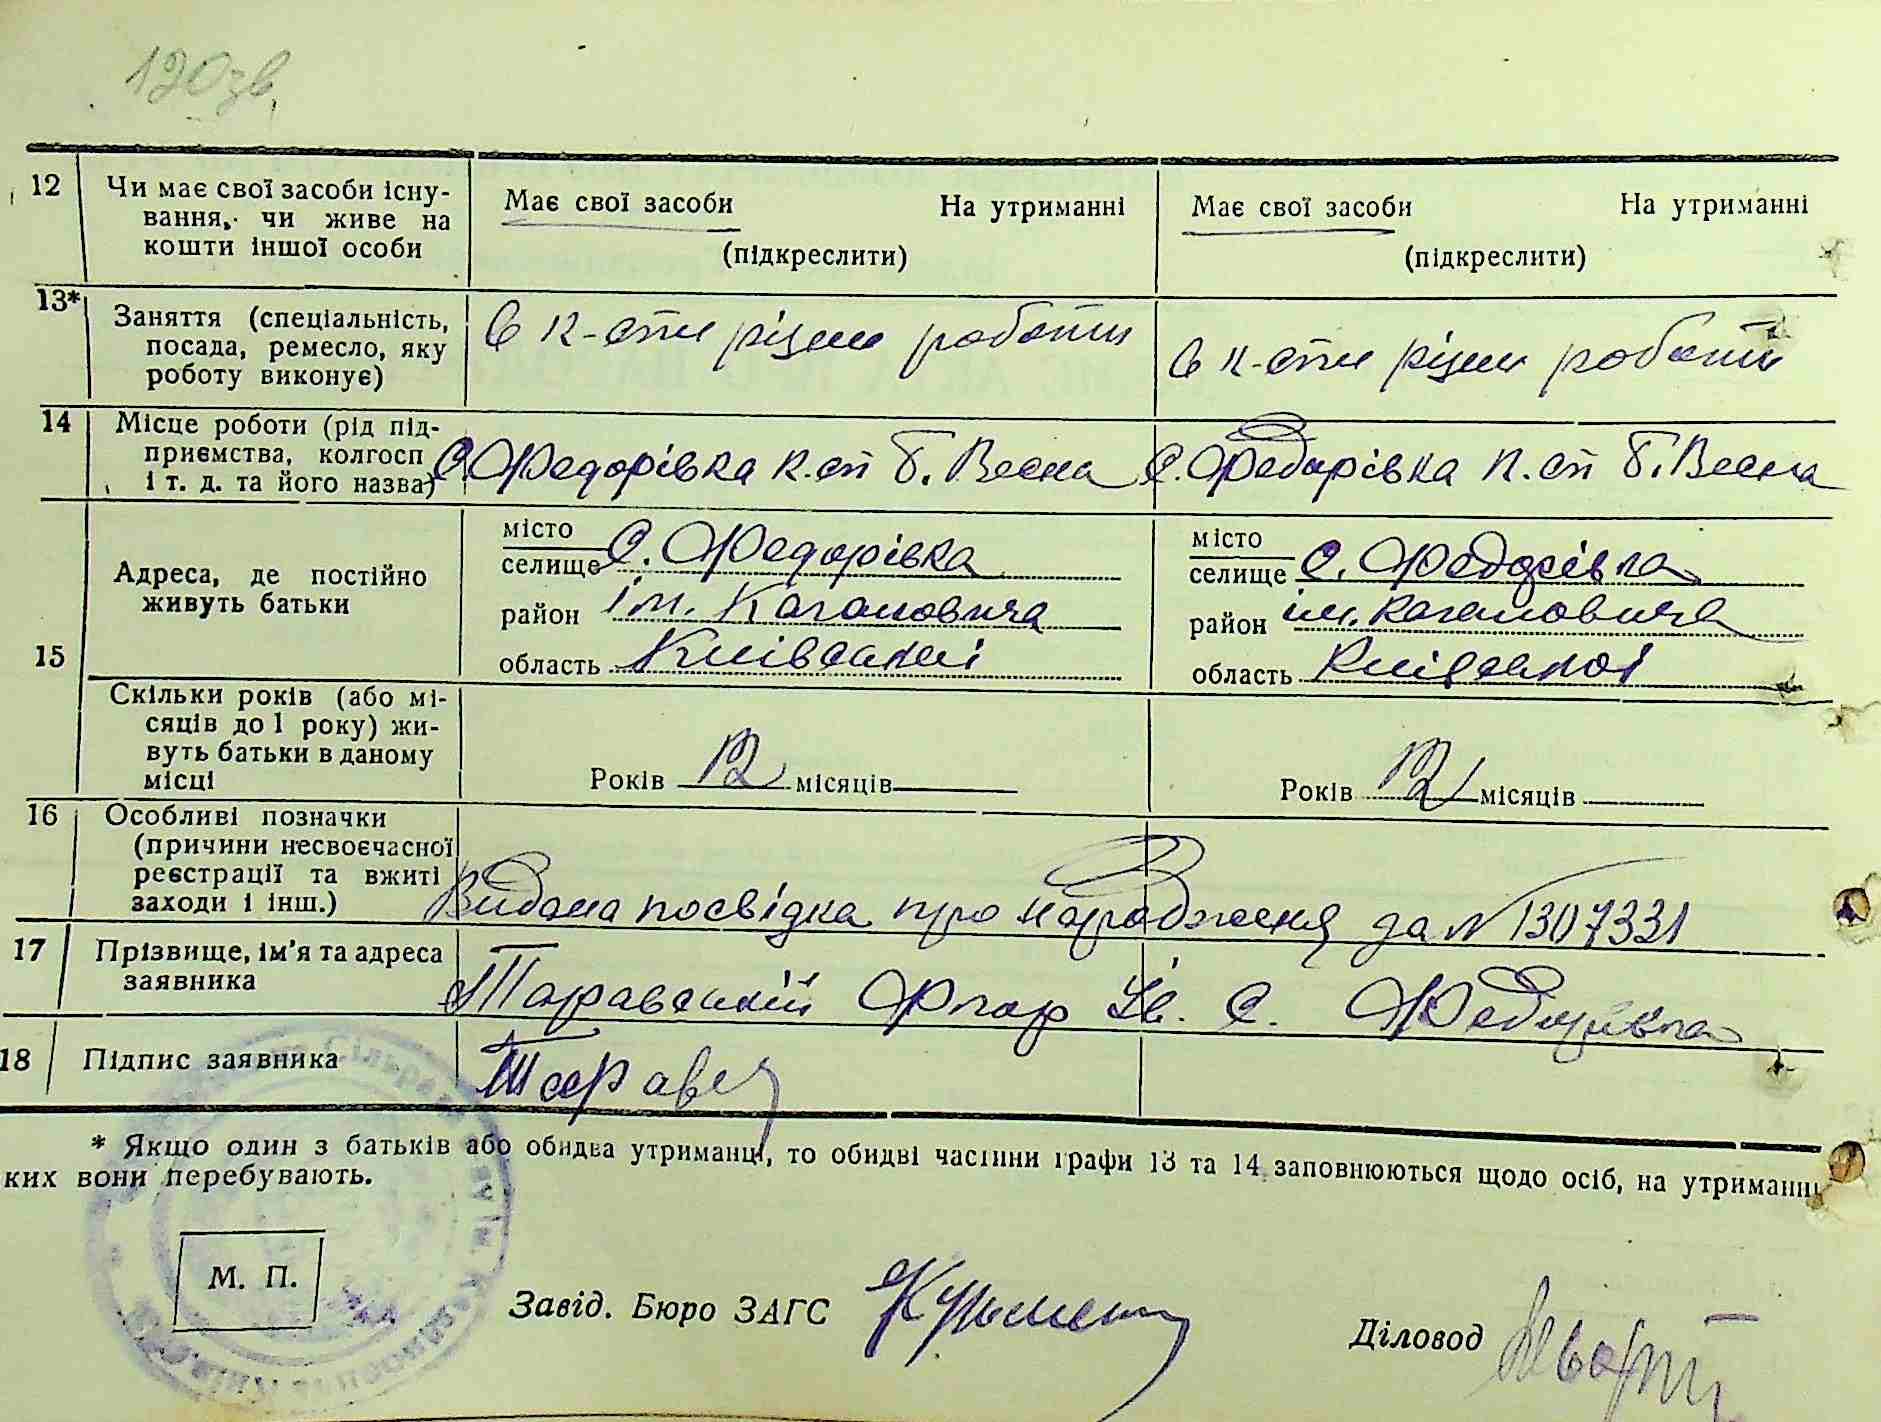 120 зв.
12 Чи має свої засоби існу-
вання, чи живе на
кошти іншої особи
Має свої засоби На утриманні
(підкреслити)
Має свої засоби На утриманні
(підкреслити)
13* Заняття (спеціальність,
посада, ремесло, яку
роботу виконує)
в к-сти різни роботи
в к-сти різни роботи
14 Місце роботи (рід під-
приємства, колгосп
і т. д. та його назва)
С. Федорівка к.сп Б. Весна
С. Федорівка к.сп Б. Весна
15 Адреса, де постійно
живуть батьки
місто
селище С. Федорівка
район ім. Кагановича
область Київської
місто
селище С. Федорівка
район ім. Кагановича
область Київської
Скільки років (або мі-
сяців до 1 року) жи-
вуть батьки в даному
місці
Років 12 місяців
Років 12 місяців
16 Особливі позначки
(причини несвоєчасної
реєстрації та вжиті
заходи і інш.)
Видана посвідка про народження за N 1307331
17 Прізвище, ім'я та адреса
заявника
Таравський Ів. С. Федорівка
18 Підпис заявника
Тарав
* Якщо один з батьків або обидва утриманці, то обидві частини графи 13 та 14 заповнюються щодо осіб, на утриманні
ких вони перебувають.
М. П.
Завід. Бюро ЗАГС
Діловод